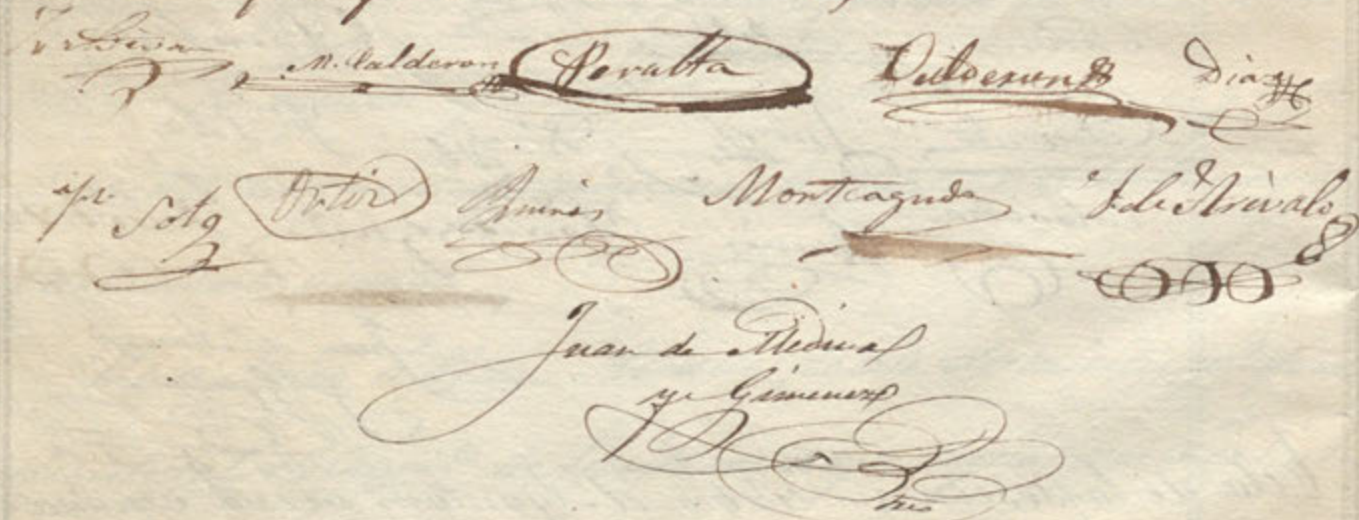 M. Calderon Peralta Calderon Diaz
Soto Ortiz Monteagudo F. de Arévalo
Juan de Medina
y Gimenez